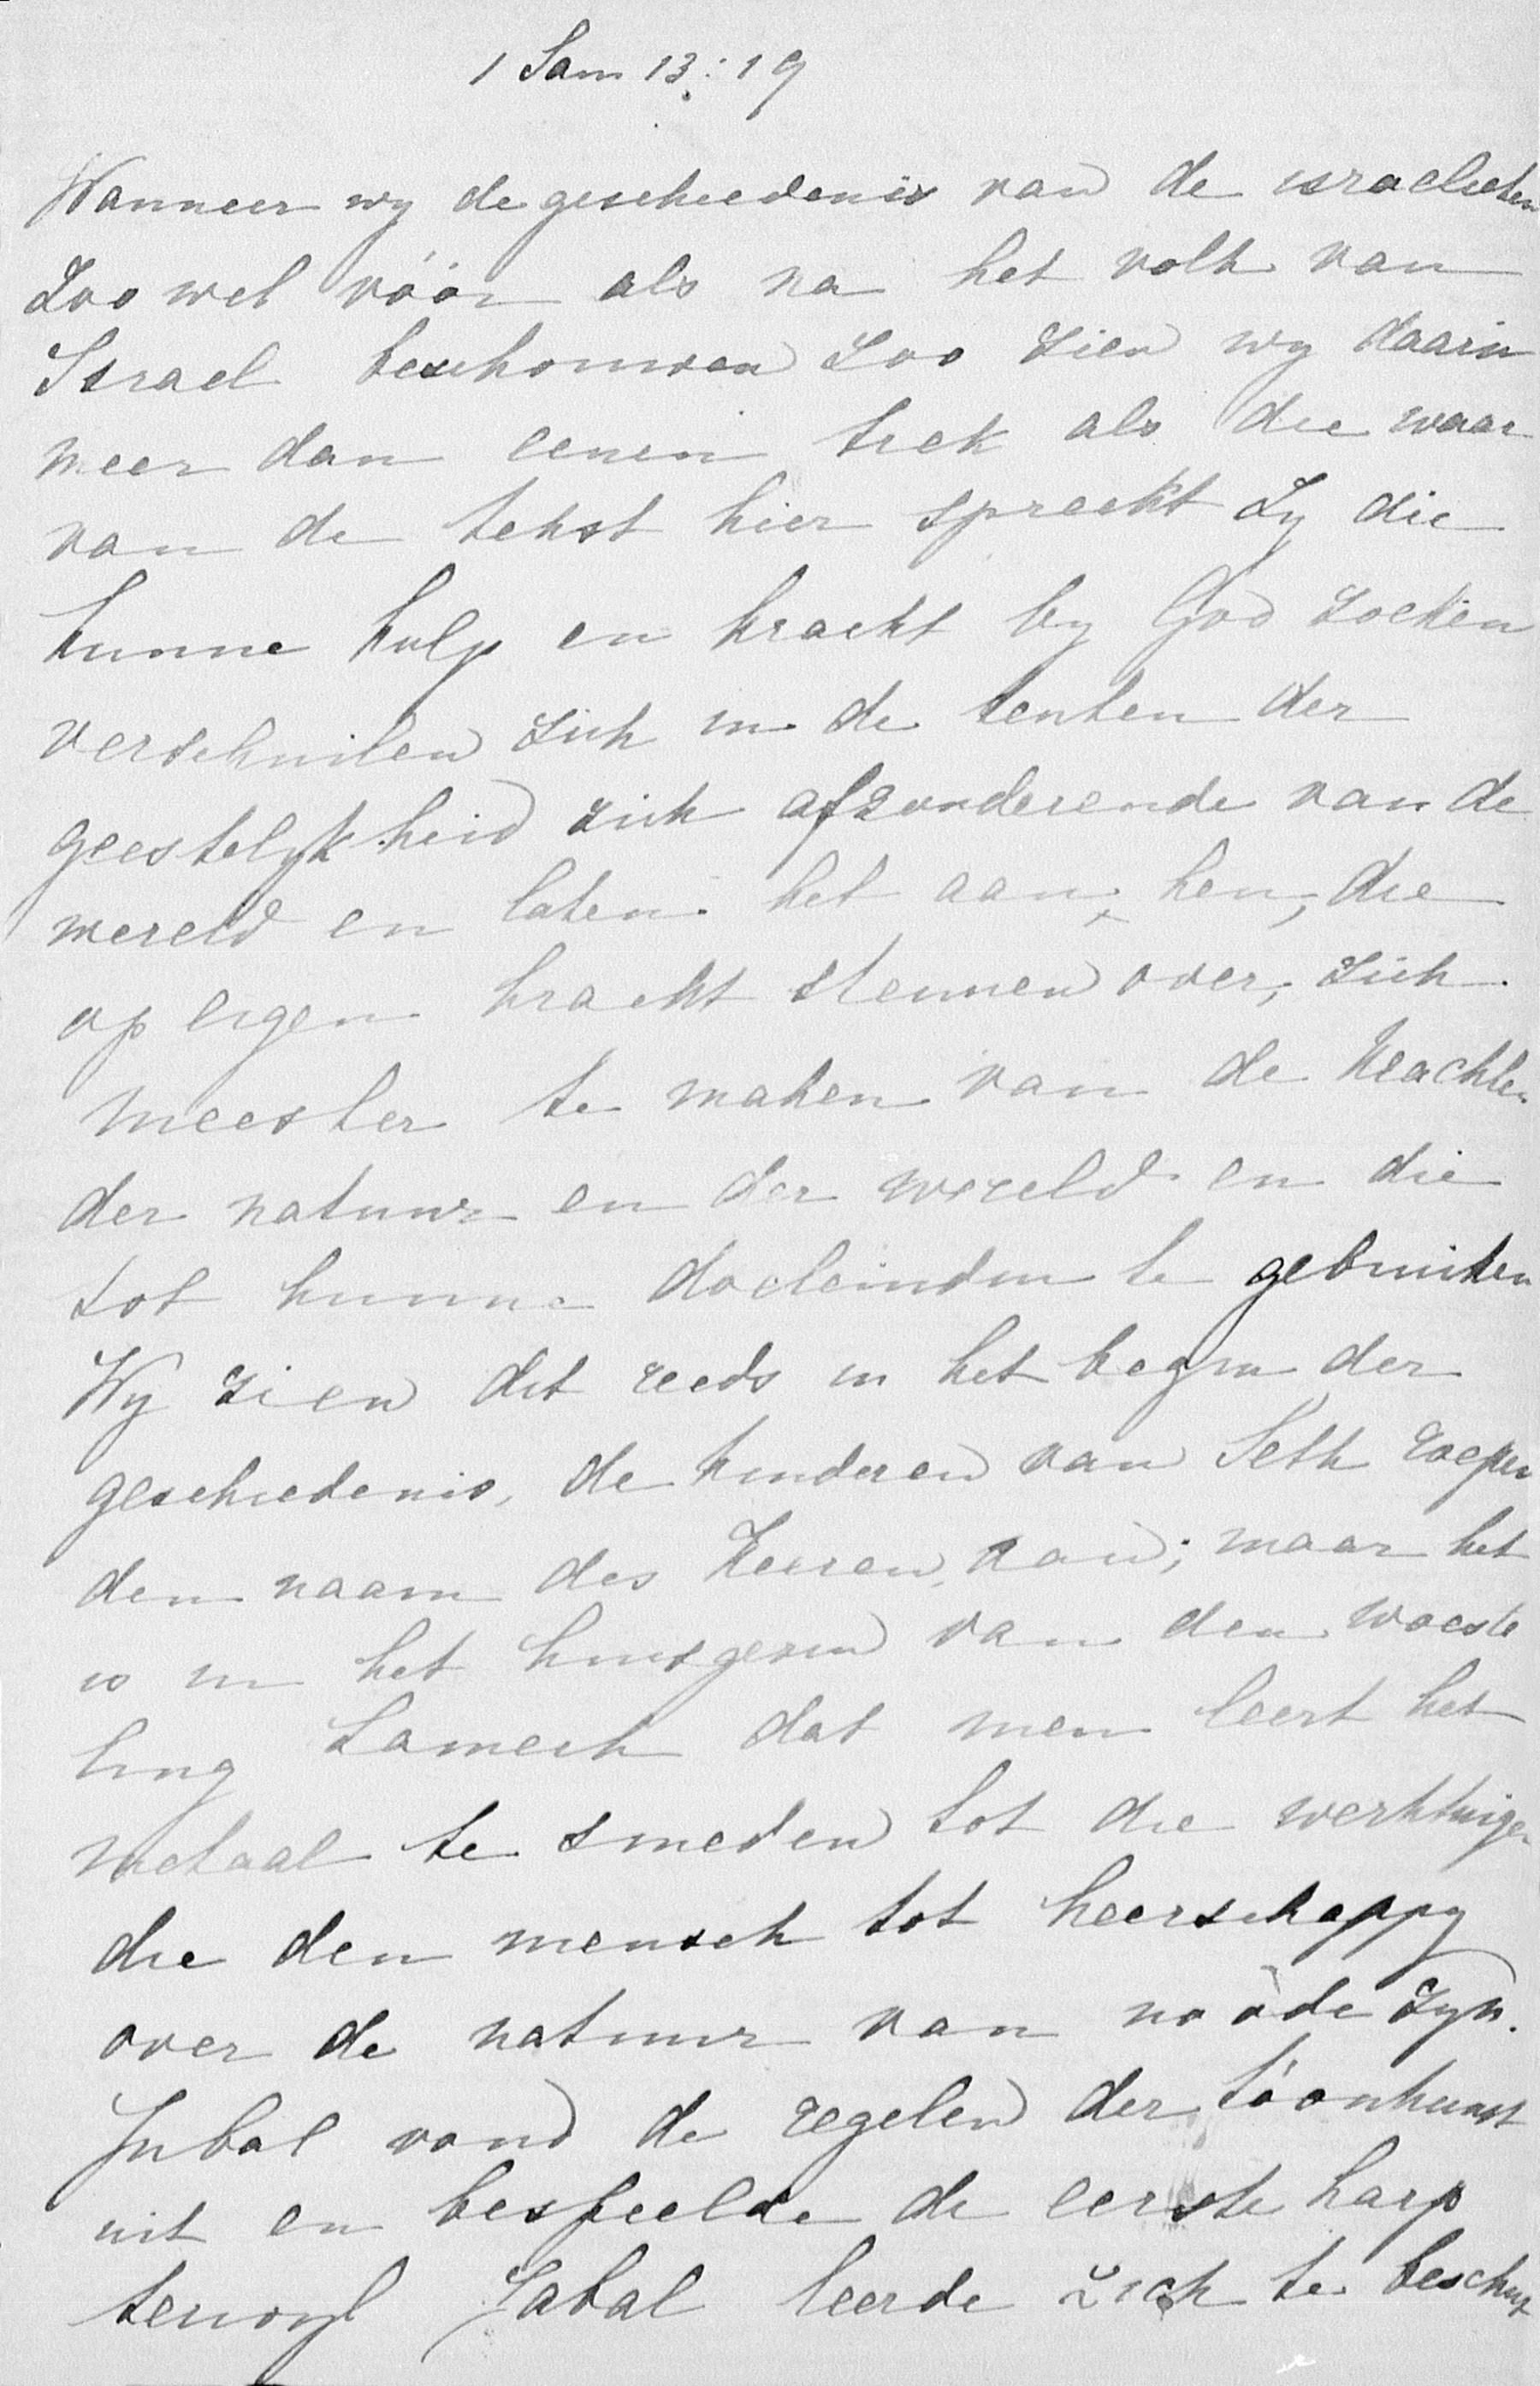 1 Sam 13:19
Wanneer wy de geschiedenis van de israelieten
Zoo wel vóór als na het volk van
Israel beschouwen Zoo zien wy daarin
meer dan eenen trek als die waar
van de tekst hier spreekt Zy die
hunne hulp en kracht by God zoeken
verschuilen zich in de tenten der
geestelykheid zich afzonderende van de
wereld en laten het aan hen, die
op eigen kracht steunen over, zich
meester te maken van de krachten
der natuur en der wereld en die
tot hunne doeleinden te gebruiken
Wy zien dit reeds in het begin der
geschiedenis, de kinderen van Seth roepen
den naam des Heeren, aan; maar het
is in het huisgezin van den woeste
ling Lamech dat men leert het
metaal te smeden tot die werktuigen
die den mensch tot heerschappy
over de natuur van noode zyn.
Jubal vond de regelen der toonkunst
uit en bespeelde de eerste harp
terwyl Jabal leerde zich te beschut